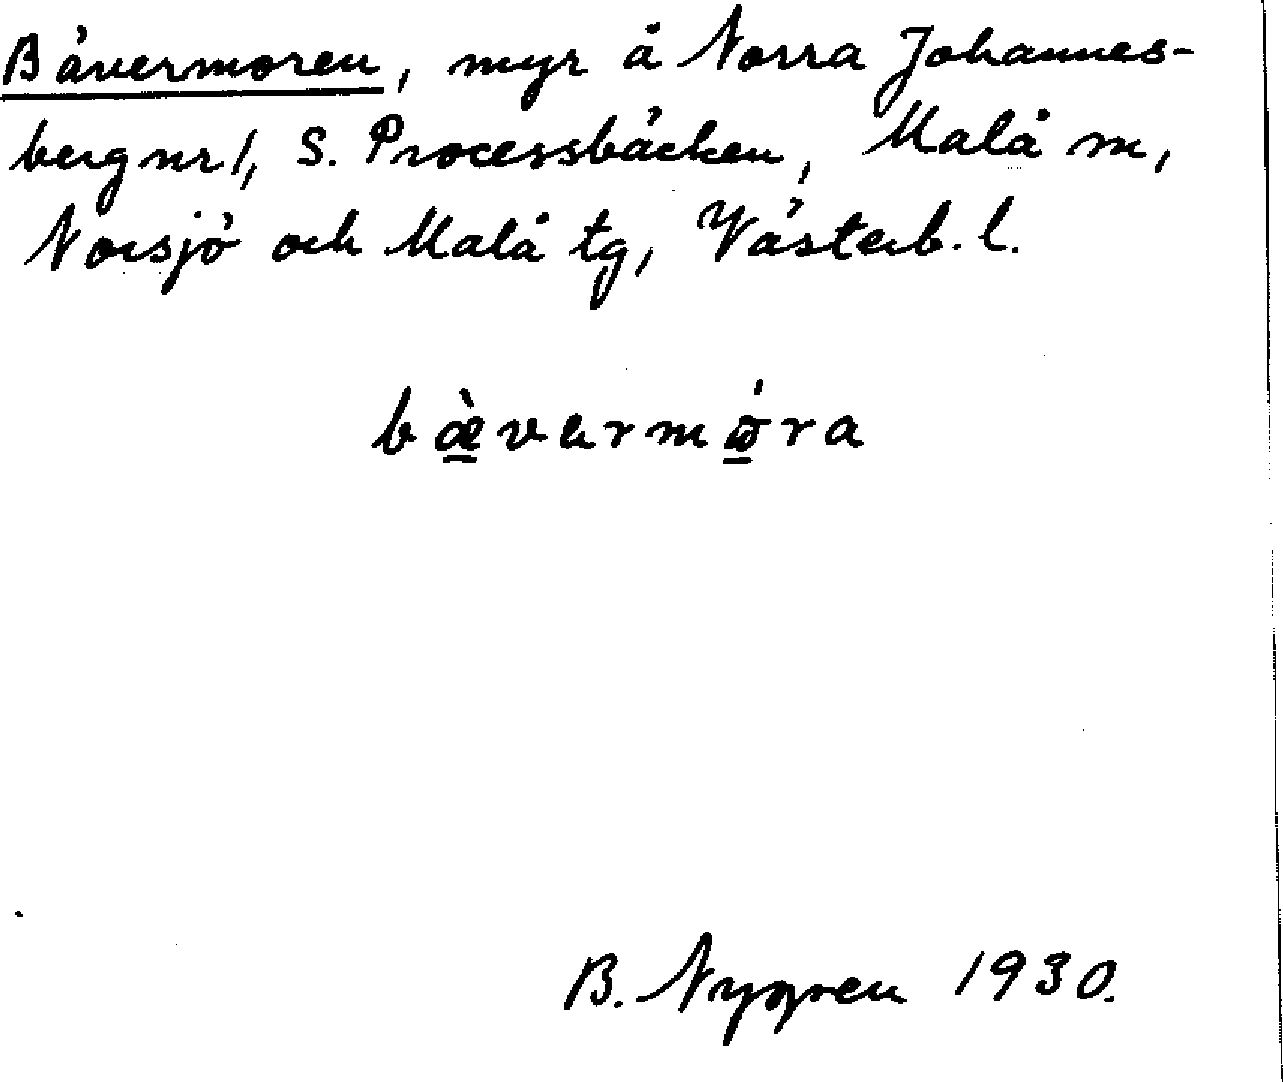 Bävermoren, myr å Norra Johannes-
berg nr 1, S. Processbäcken, Malå m,
Norsjö och Malå tg, Västerb. l.
bæ̀vermóra
B. Nygren 1930.